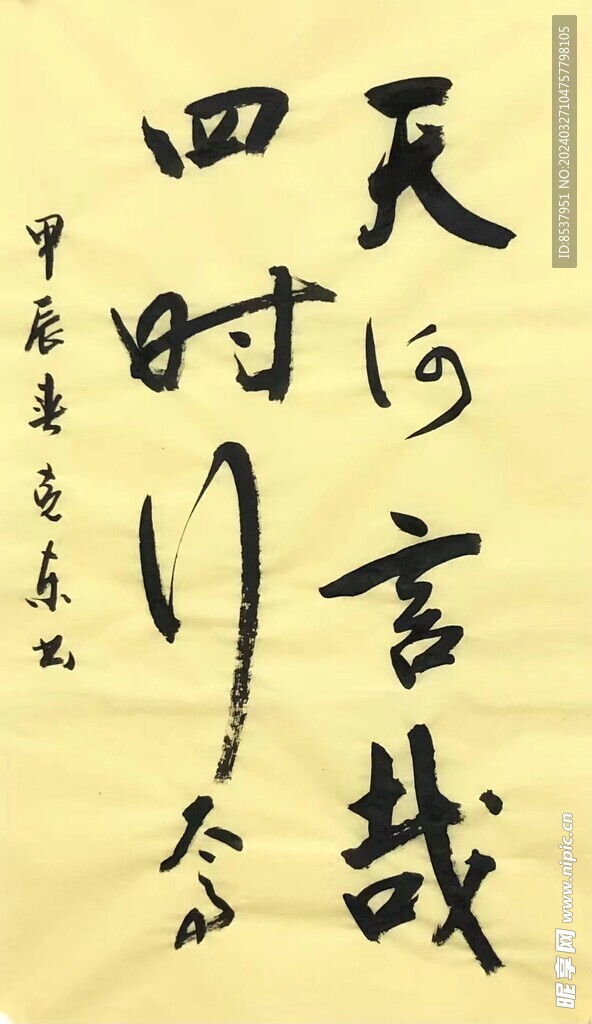 天何言哉
四时行焉
甲辰春克东书
ID:8537951 NO:20240327104757798105
昵享网 www.nipic.cn